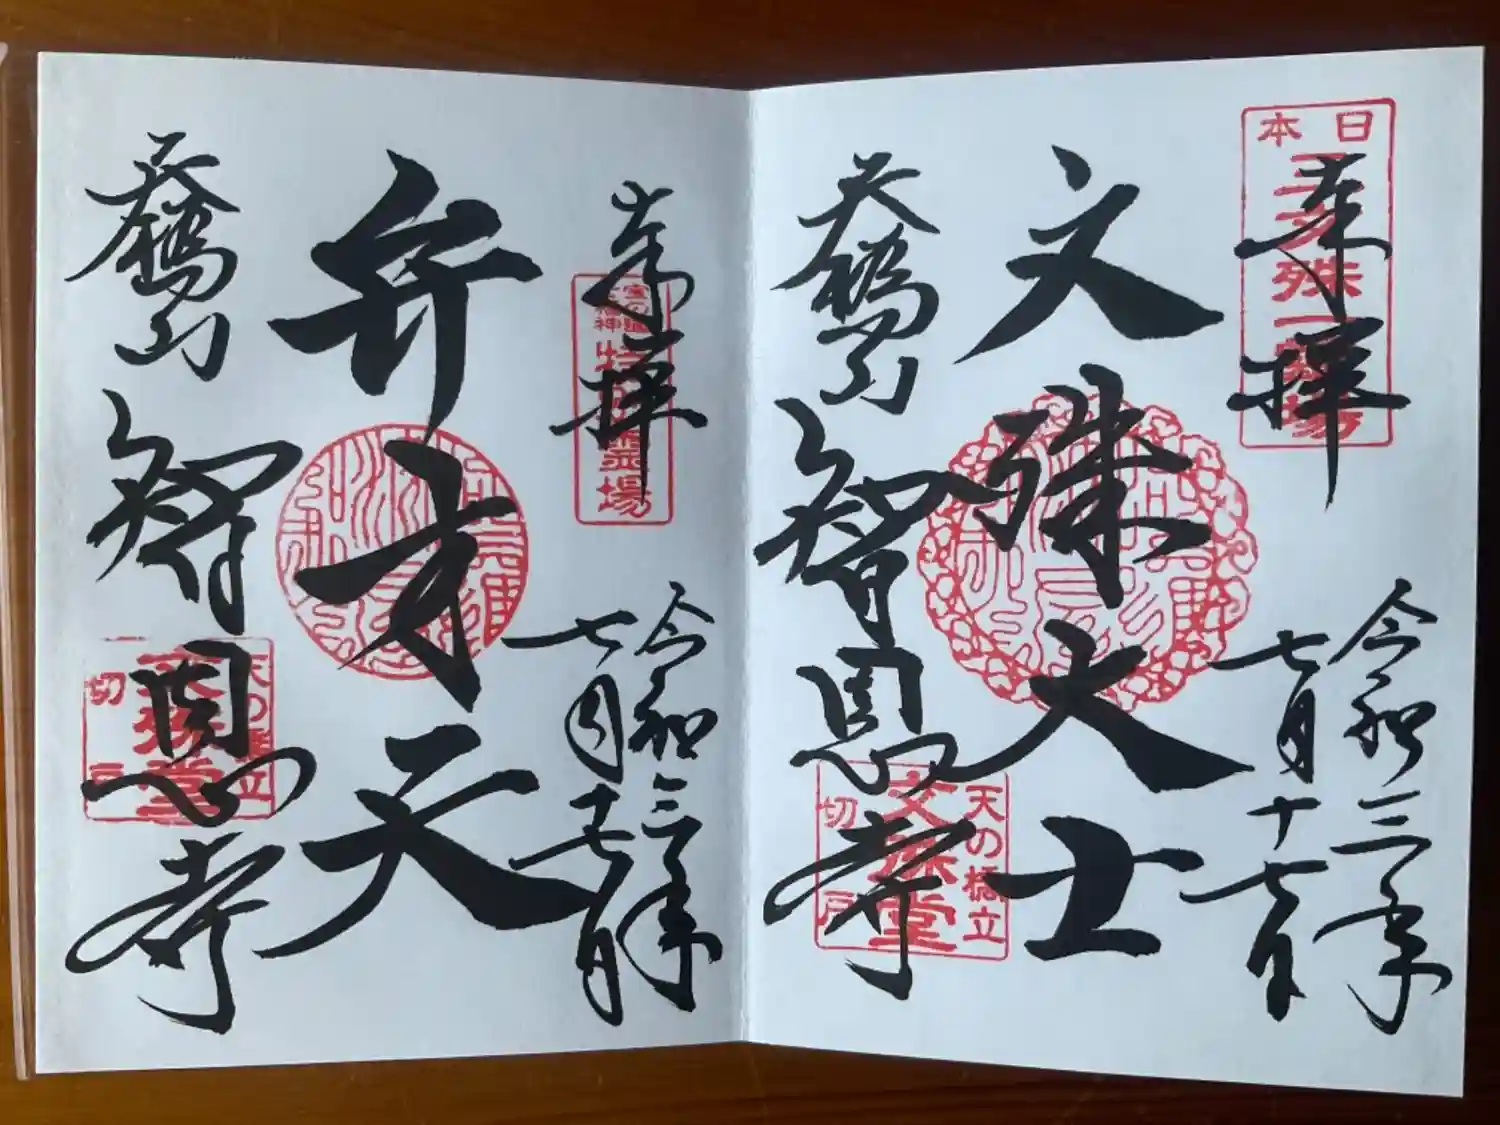 奉拝
日本三文殊一霊場
令和三年
七月十七日
文殊大士
天橋山
智恩寺
天の橋立
文殊堂
切戸
奉拝
霊場
令和三年
七月十七日
弁才天
天橋山
智恩寺
天の橋立
文殊堂
切戸